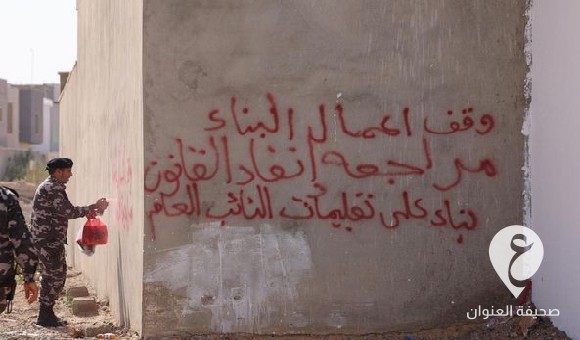 وقف اعمال البناء
مراجعه إنفاد القانون
بناء على تعليمات النائب العام
صحيفة العنوان